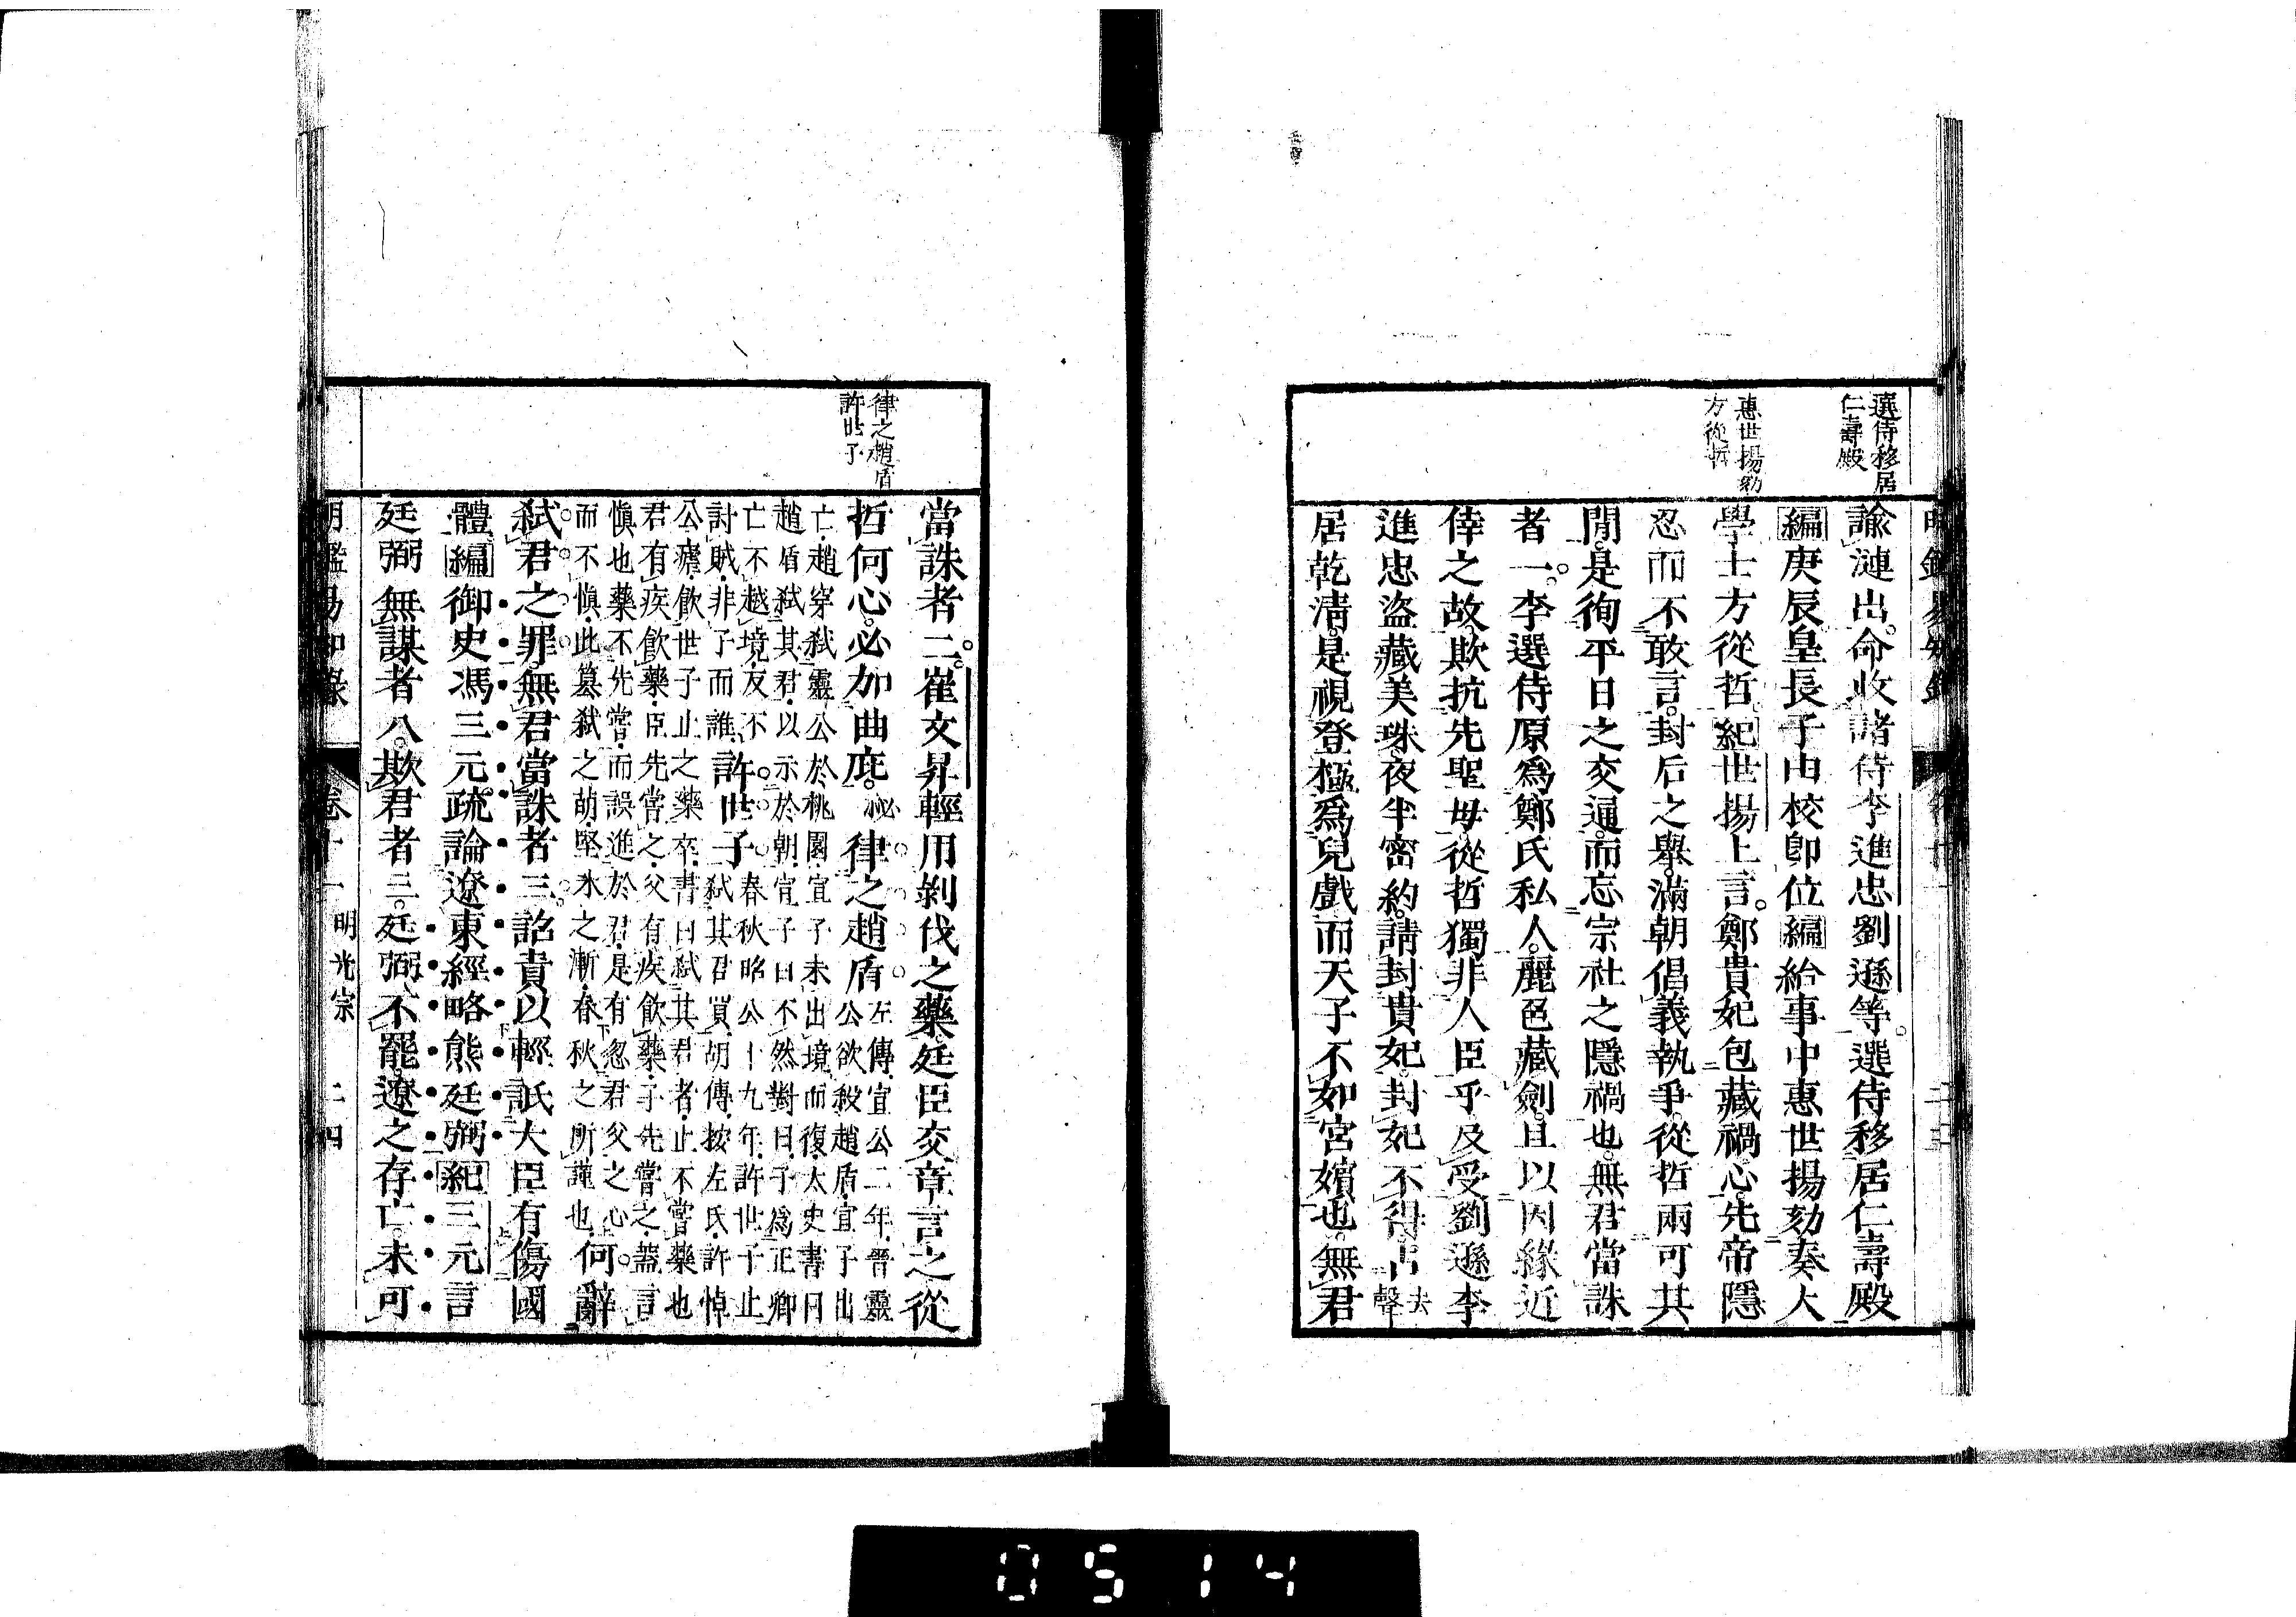 選侍移居
仁壽殿
惠世揚劾
方從哲
諭漣出命收諸侍李進忠劉遜等選侍移居仁壽殿
編庚辰皇長子由校卽位編給事中惠世揚劾奏大
學士方從哲紀世揚上言鄭貴妃包藏禍心先帝隱
忍而不敢言封后之舉滿朝倡義執爭從哲兩可其
閒是徇平日之交逼而忘宗社之隱禍也無君當誅
者一李選侍原爲鄭氏私人麗色藏劍且以因緣近
倖之故欺抗先聖母從哲獨非人臣乎及受劉遜李
進忠盜藏美珠夜半密約請封貴妃封妃不得去聲
居乾淸是視登極爲兒戲而天子不如宮嬪也無君
律之趙盾
許世子
當誅者二崔文昇輕用剝伐之藥廷臣交章言之從
哲何心必加曲庇律之趙盾左傳宣公二年晉靈
公欲殺趙盾宣子出
亡趙穿弒靈公於桃園宣子未出境而復太史書曰
趙盾弒其君以示於朝宣子曰不然對曰子爲正卿
亡不越境反不
討賊非子而誰許世子春秋昭公十九年許世子止
弒其君買胡傳按左氏許悼
公瘧飮世子止之藥卒書曰弒其君者止不嘗藥也
君有疾飮藥臣先嘗之父有疾飮藥子先嘗之蓋言
愼也藥不先嘗而誤進於君是有忽君父之心
而不愼此簒弒之萌堅氷之漸春秋之所謹也何辭
弒君之罪無君當誅者三詔責以輕詆大臣有傷國
體編御史馮三元疏論遼東經略熊廷弼紀三元言
廷弼無謀者八欺君者三廷弼不罷遼之存亡未可
明鑑易知錄 卷十一 明光宗 二四
0514